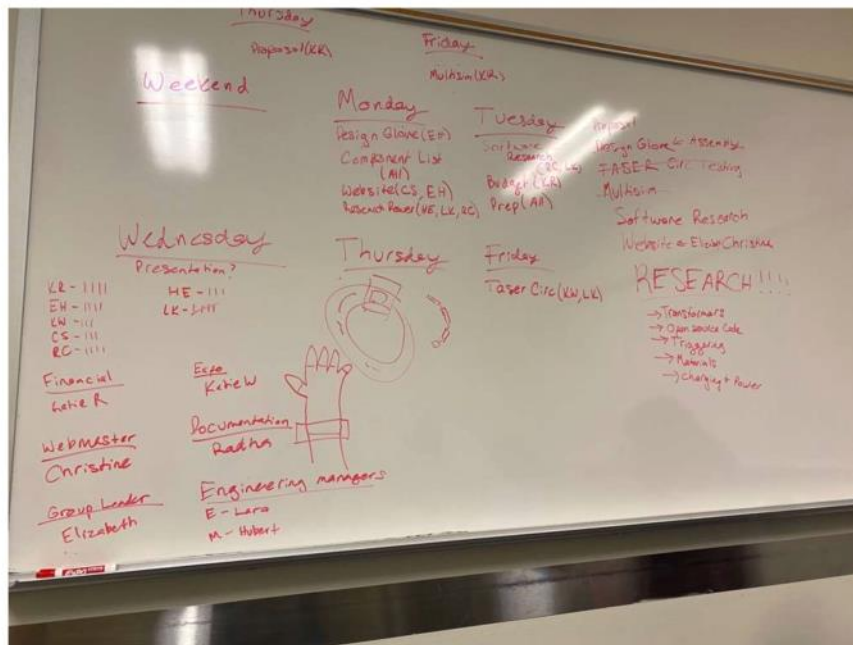 Thursday
Proposal (KR)
Friday
Multisim (KR)
Weekend
Monday
Design Glove (EH)
Component List
(All)
Website (CS, EH)
Research Power (HE, LK, RC)
Tuesday
Software
Research
(RC, LK)
Budget (KR)
Prep (All)
Proposal
Design Glove & Assembly
TASER Circ Testing
Multisim
Software Research
Website Christine
RESEARCH!!!!
→ Transformers
→ Open source Code
→ Triggering
→ Materials
→ Charging + Power
Wednesday
Presentation?
KR - ||||
EH - ||||
KW - |||
CS - |||
RC - ||||
HE - |||
LK - ||||
Thursday
Friday
Taser Circ (KW, LK)
Financial
Katie R
Katie W
Webmaster
Christine
Documentation
Radha
Group Leader
Elizabeth
Engineering managers
E - Lara
M - Hubert